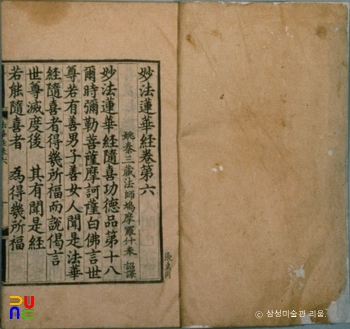 妙法蓮華經卷第六
姚秦三藏法師鳩摩羅什奉 詔譯
妙法蓮華經隨喜功德品第十八
爾時彌勒菩薩摩訶薩白佛言世
尊若有善男子善女人聞是法華
經隨喜者得幾所福而說偈言
世尊滅度後 其有聞是經
若能隨喜者 為得幾所福
© 삼성미술관 리움